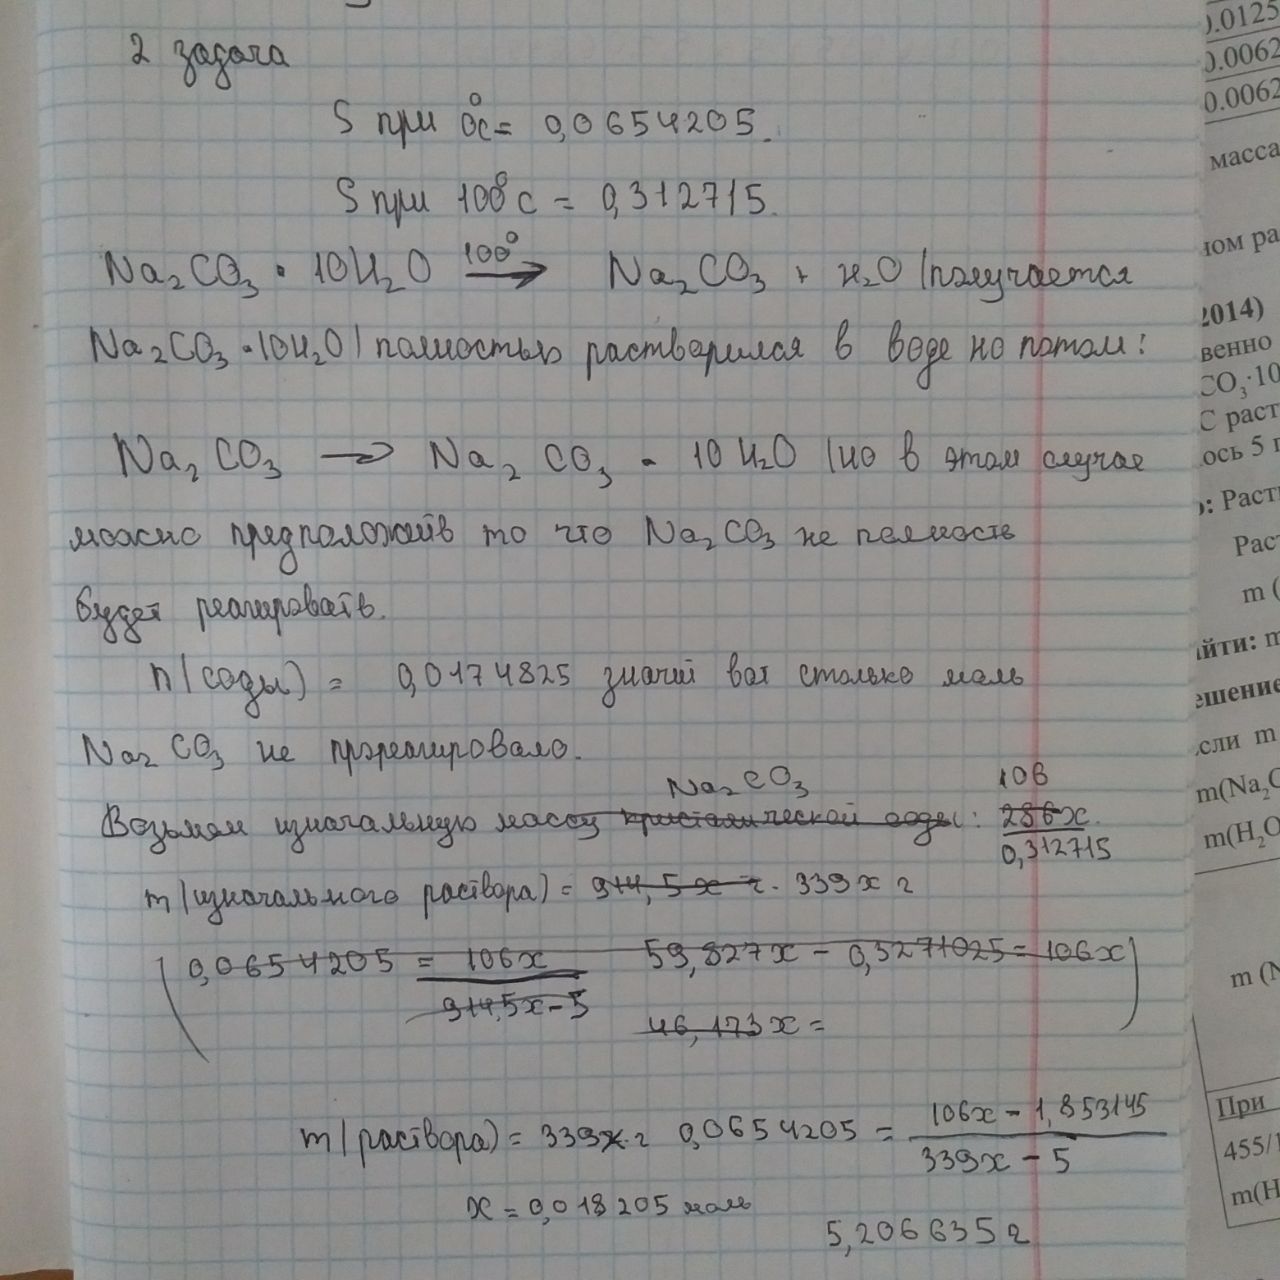 2 задача
S при 0°C = 0,0654205.
S при 100°C = 0,312715.
Na₂CO₃ · 10H₂O —100°→ Na₂CO₃ + H₂O (получается
Na₂CO₃ · 10H₂O) полностью растворился в воде но потом:
Na₂CO₃ → Na₂CO₃ · 10H₂O (но в этом случае
можно предположить то что Na₂CO₃ не полность
будет реагировать.
n(соды) = 0,0174825 значит вот столько моль
Na₂CO₃ не прореагировало.
Na₂CO₃ 106
Возьмем изначальную массу кристалической соды: 286x.
0,312715
m(изначального раствора) = 914,5x г. 339x г
0,0654205 = 106x 59,827x - 0,3271025 = 106x
914,5x - 5
46,173x =
106x - 1,853145
m(раствора) = 339x г 0,0654205 =
339x - 5
x = 0,018205 моль
5,206635 г
0.0125
0.0062
0.0062
масса
ном ра
2014)
венно
CO₃·10
С раст
ось 5 г
о: Раст
Рас
m (
айти: m
ешение
сли m
m(Na₂C
m(H₂O
m (N
При
455/1
m(H